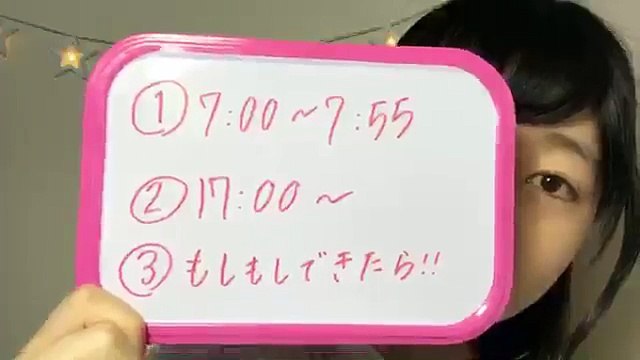 ① 7:00~7:55
② 17:00~
③ もしもしできたら!!